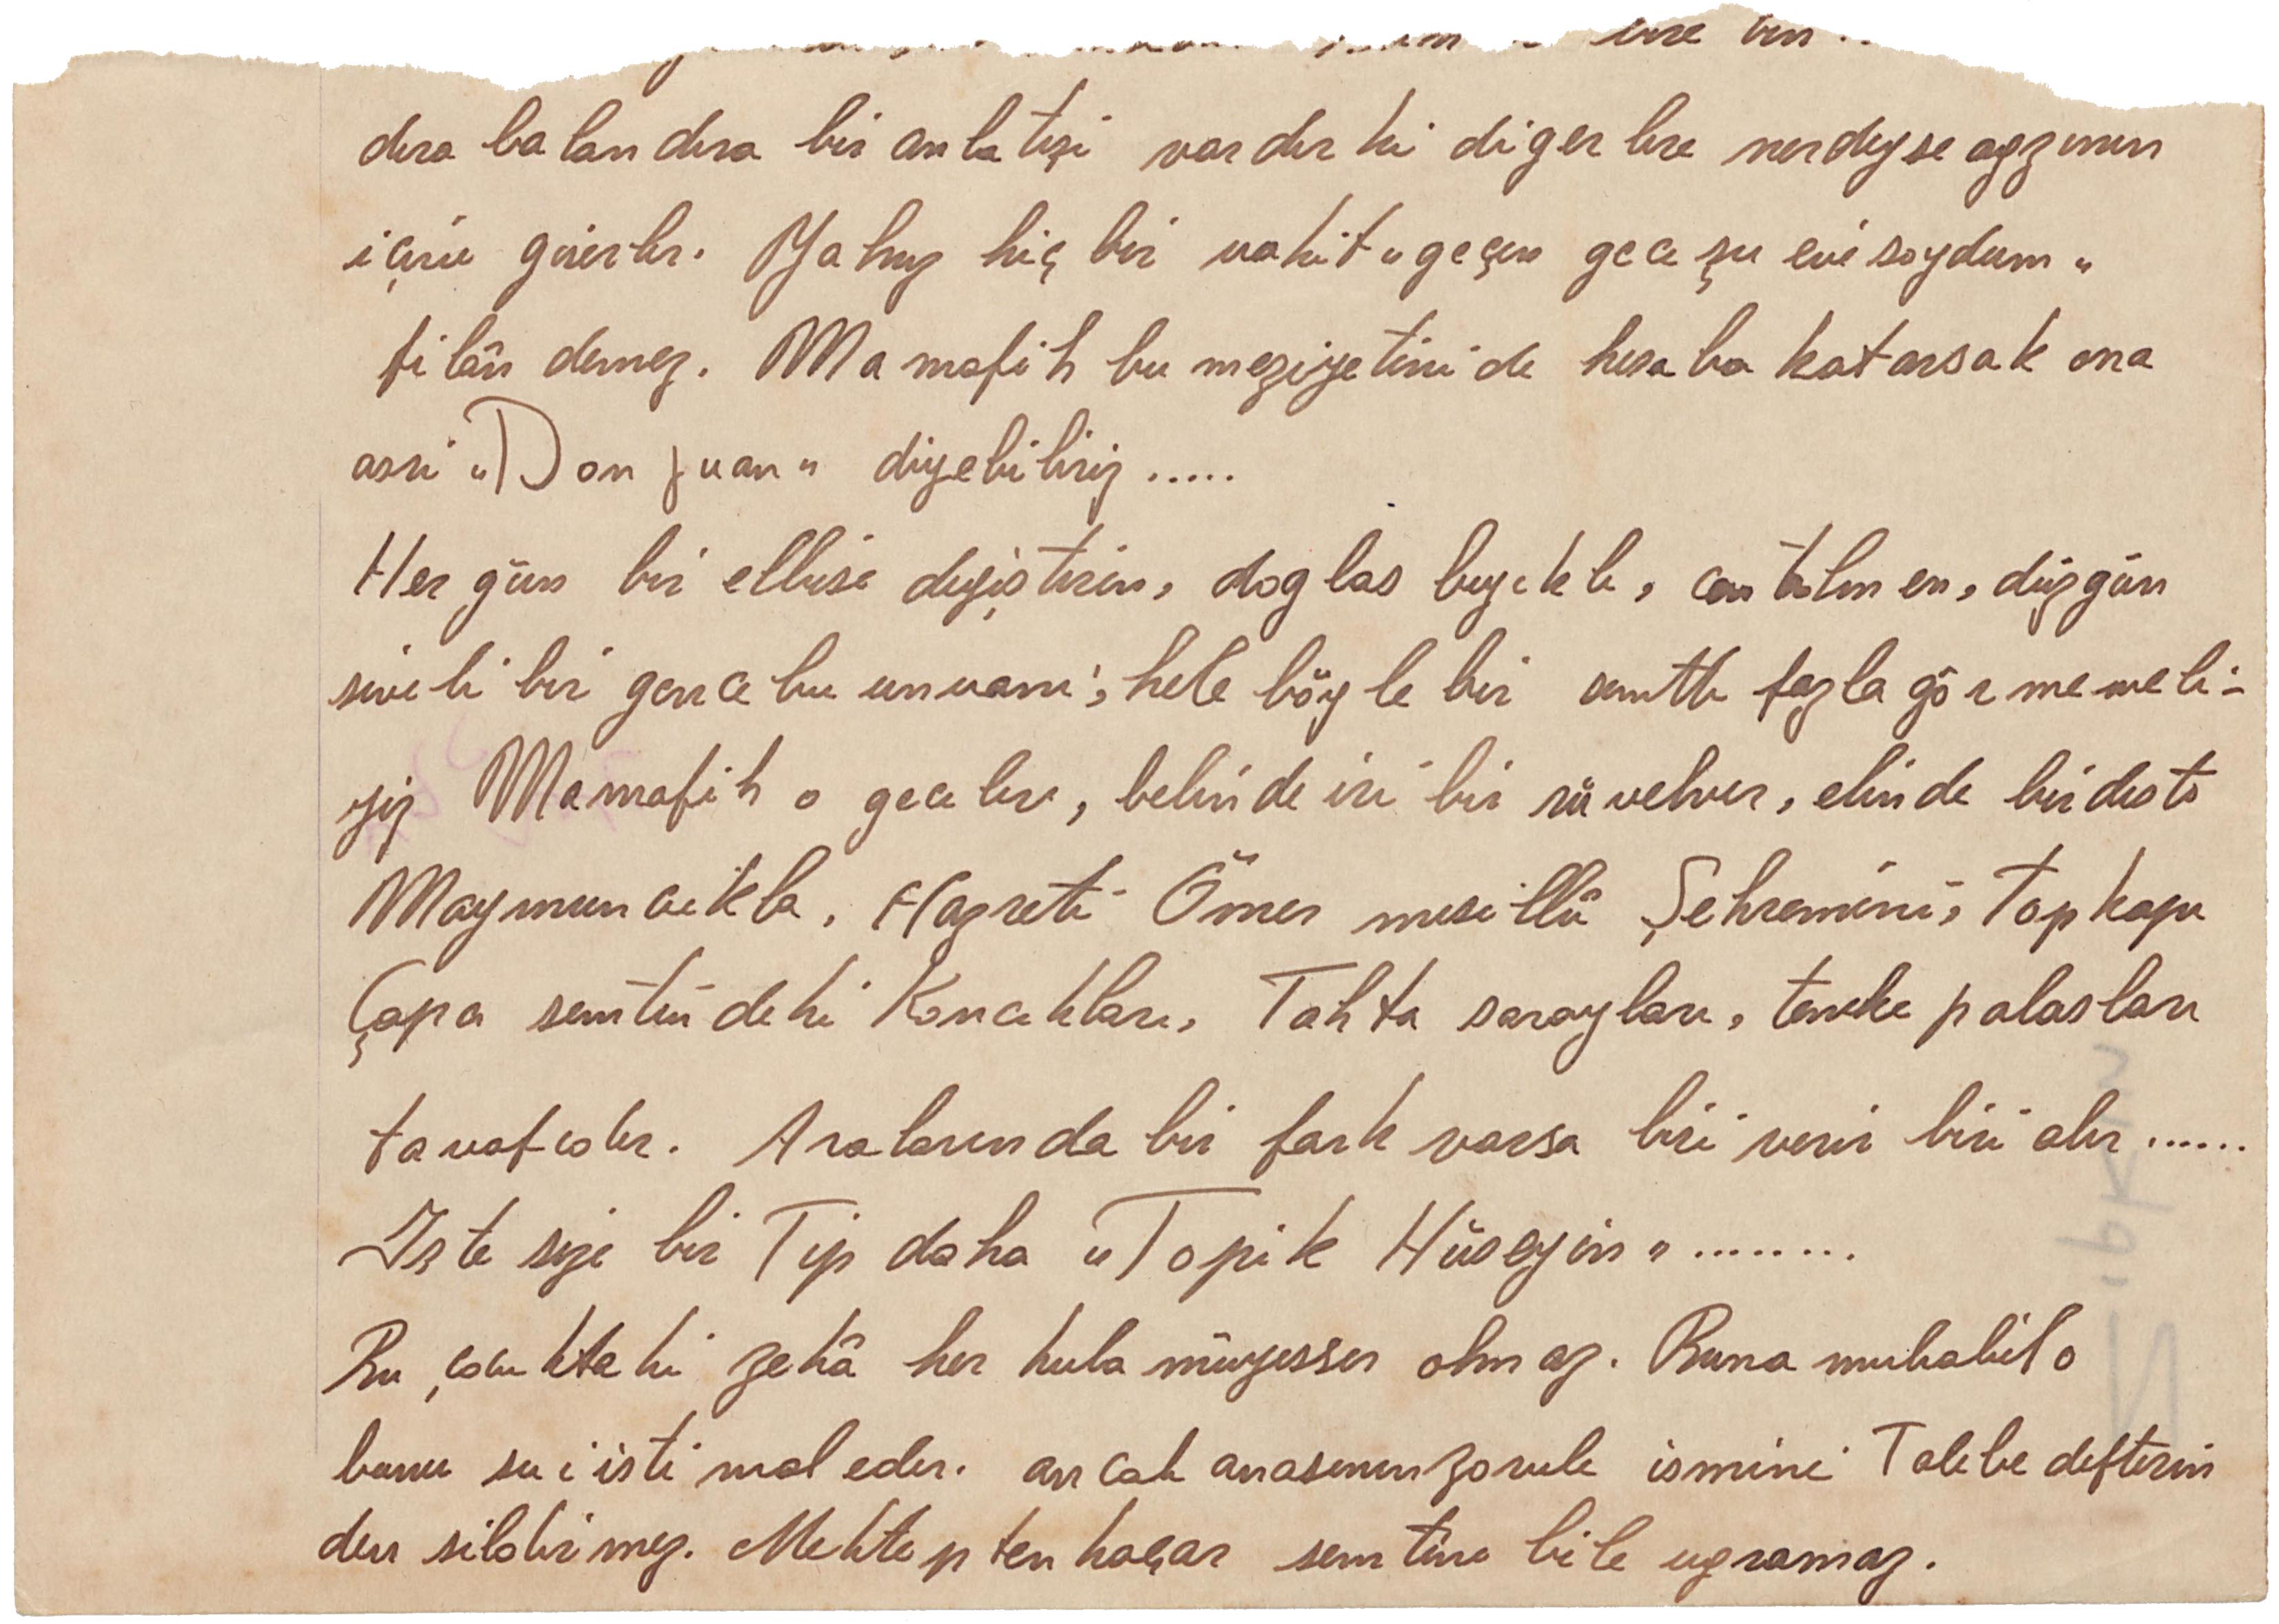 dıra balandıra bir anlatışı vardır ki digerlere nerdeyse agzının
içine girerler. Yalnız hiç bir vakit „geçen gece şu evi soydum„
filân demez. Mamafih bu meziyetini de hesaba katarsak ona
asri „Don Juan„ diyebiliriz .....
Her gün bir elbise degiştiren, doglas bıyıklı, centilmen, düzgün
siveli bir gence bu unvanı, hele böyle bir semtte fazla görmemeli-
yiz Mamafih o geceleri, belinde iri bir rüvelver, elinde bir deste
Maymuncukla, Hazreti Ömer misillü Şehremini, Topkapu
Çapa semtindeki Konakları, Tahta sarayları, teneke palasları
tavaf eder. Aralarında bir fark varsa biri verir biri alır ......
Işte size bir Tip daha „Topik Hüseyin„ ........
Bu çocuktaki zekâ her kula müyesser olmaz. Buna mukabil o
bunu sui istimal eder. ancak anasının zorule ismini Talebe defterin
den sildirmez. Mektepten kaçar semtine bile ugramaz.
Zıpkın